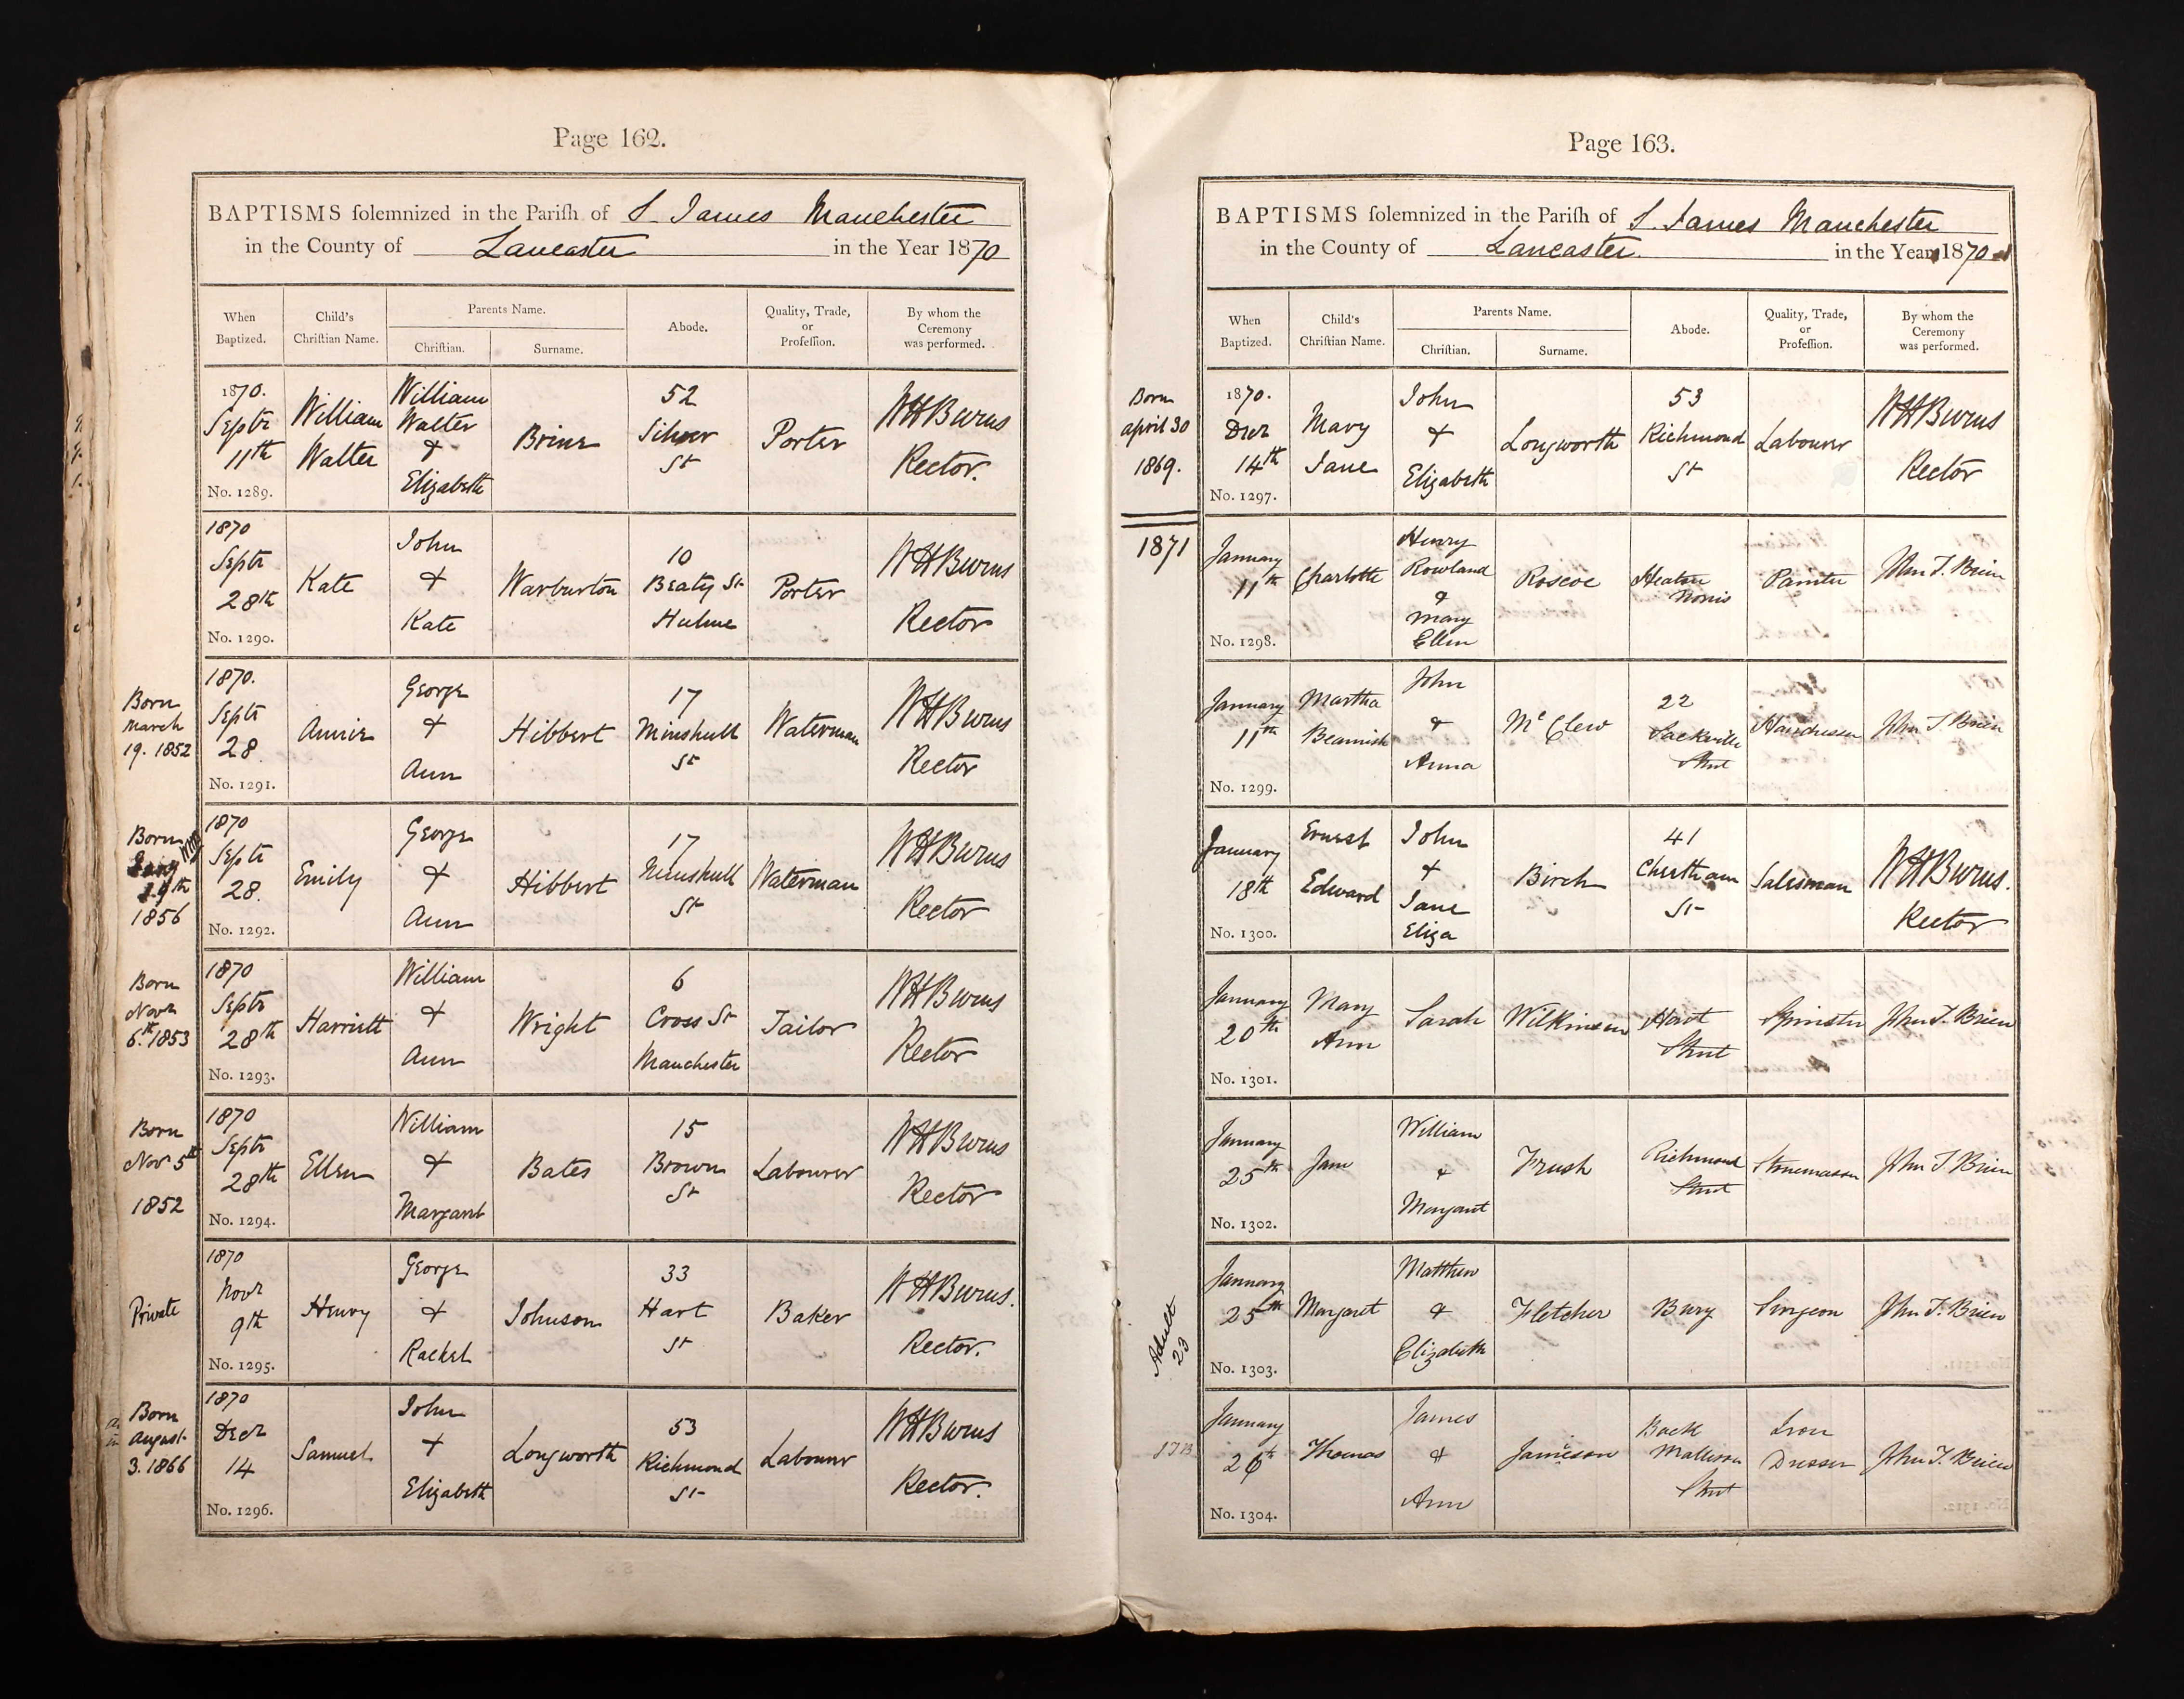 Page 162.
BAPTISMS solemnized in the Parish of S. James Manchester
in the County of Lancaster in the Year 1870
When Baptized.
Child's Christian Name.
Parents Name.
Christian.
Surname.
Abode.
Quality, Trade, or Profession.
By whom the Ceremony was performed.
1870. Septr 11th
No. 1289.
William Walter
William Walter & Elizabeth
Brine
52 Silver St
Porter
WHBurns Rector.
1870 Septr 28th
No. 1290.
Kate
John & Kate
Warburton
10 Beaty St Hulme
Porter
WHBurns Rector
Born March 19. 1852
1870. Septr 28
No. 1291.
Annie
George & Ann
Hibbert
17 Minshull St
Waterman
WHBurns Rector
Born 1856
1870 Septr 28.
No. 1292.
Emily
George & Ann
Hibbert
17 Minshull St
Waterman
WHBurns Rector
Born Novr 6th 1853
1870 Septr 28th
No. 1293.
Harriett
William & Ann
Wright
6 Cross St Manchester
Tailor
WHBurns Rector
Born Nov 5th 1852
1870 Septr 28th
No. 1294.
Ellen
William & Margaret
Bates
15 Brown St
Labourer
WHBurns Rector
Private
1870 Novr 9th
No. 1295.
Henry
George & Rachel
Johnson
33 Hart St
Baker
WHBurns. Rector.
Born August 3. 1866
1870 Decr 14
No. 1296.
Samuel
John & Elizabeth
Longworth
53 Richmond St
Labourer
WHBurns Rector.
Page 163.
BAPTISMS solemnized in the Parish of S. James Manchester
in the County of Lancaster. in the Year 1870
When Baptized.
Child's Christian Name.
Parents Name.
Christian.
Surname.
Abode.
Quality, Trade, or Profession.
By whom the Ceremony was performed.
Born april 30 1869.
1870. Decr 14th
No. 1297.
Mary Jane
John & Elizabeth
Longworth
53 Richmond St
Labourer
WHBurns Rector
1871
January 11th
No. 1298.
Charlotte
Henry Rowland & Mary Ellen
Roscoe
Heaton Norris
Painter
John T. Brien
January 11th
No. 1299.
Martha Beamish
John & Anna
Mc Clew
22 Sackville Street
John T Brien
January 18th
No. 1300.
Ernest Edward
John & Jane Eliza
Birch
41 Cheetham St
Salesman
WHBurns. Rector
January 20th
No. 1301.
Mary Ann
Sarah
Wilkinson
Hart Street
Spinster
John T. Brien
January 25th
No. 1302.
Jane
William & Margaret
Frush
Richmond Street
Stonemason
John T Brien
Adult 23
January 25th
No. 1303.
Margaret
Matthew & Elizabeth
Fletcher
Bury
Surgeon
John T. Brien
January 26th
No. 1304.
Thomas
James & Ann
Jameson
Back Mallison Street
Iron Dresser
John T. Brien